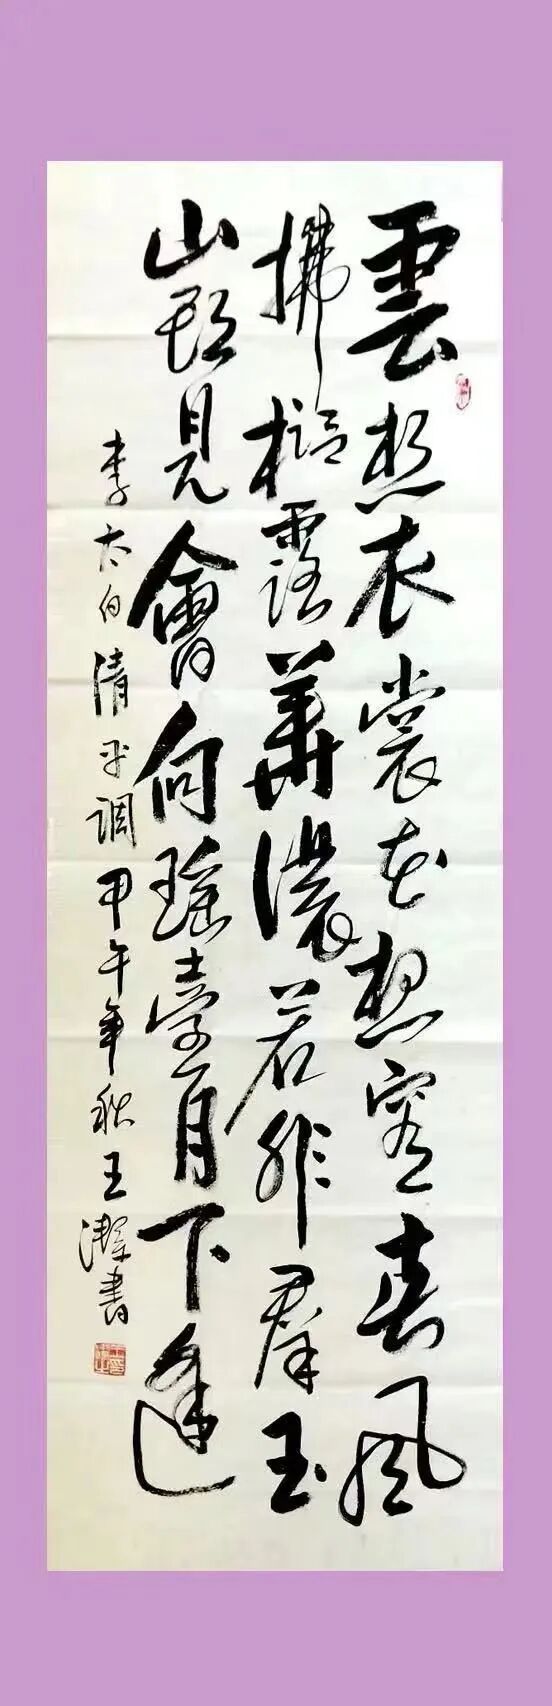 雲想衣裳花想容春風
拂檻露華濃若非群玉
山頭見會向瑶臺月下逢
李太白清平调甲午年秋王潔書